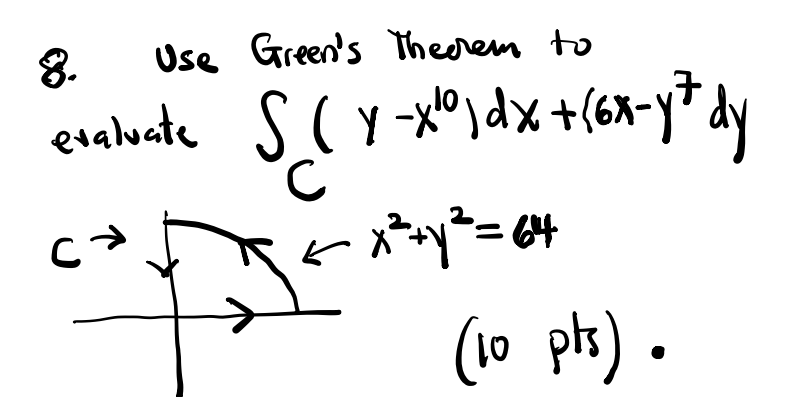 8. Use Green's Theorem to
evaluate ∫_C (y - x^10)dx + (6x - y^7 dy
C → ← x^2 + y^2 = 64
(10 pts).